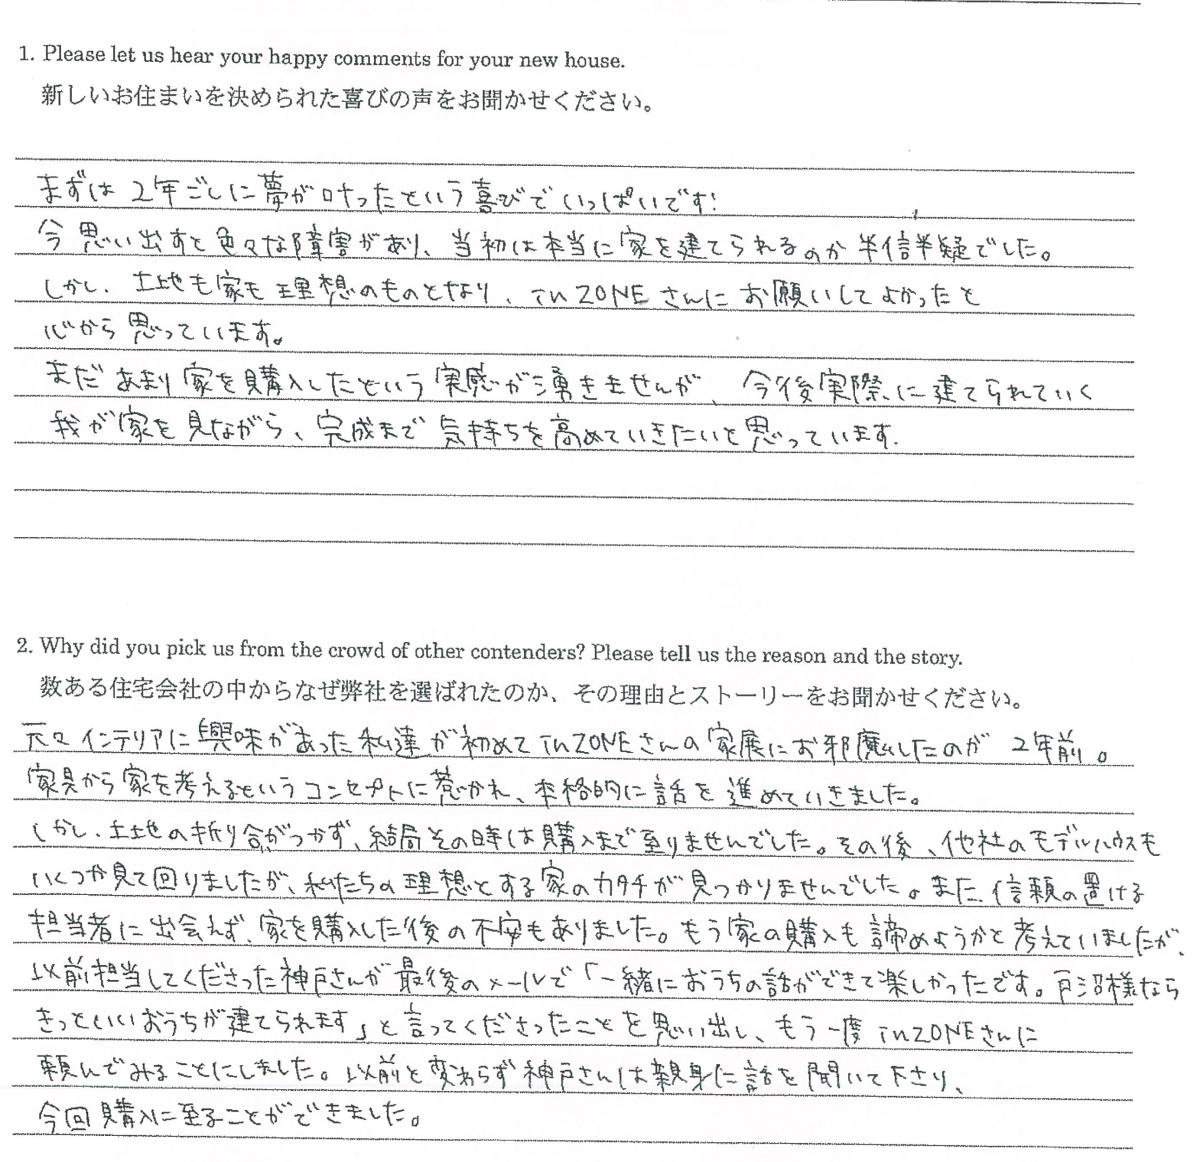 1. Please let us hear your happy comments for your new house.
新しいお住まいを決められた喜びの声をお聞かせください。
まずは2年ごしに夢が叶ったという喜びでいっぱいです!
今思い出すと色々な障害があり、当初は本当に家を建てられるのか半信半疑でした。
しかし、土地も家も理想のものとなり、inZONEさんにお願いしてよかったと
心から思っています。
まだあまり家を購入したという実感が湧きませんが、今後実際に建てられていく
我が家を見ながら、完成まで気持ちを高めていきたいと思っています.
2. Why did you pick us from the crowd of other contenders? Please tell us the reason and the story.
数ある住宅会社の中からなぜ弊社を選ばれたのか、その理由とストーリーをお聞かせください。
元々インテリアに興味があった私達が初めてinZONEさんの家展にお邪魔したのが2年前。
家具から家を考えるというコンセプトに惹かれ、本格的に話を進めていきました。
しかし、土地の折り合がつかず、結局その時は購入まで至りませんでした。その後、他社のモデルハウスも
いくつか見て回りましたが、私たちの理想とする家のカタチが見つかりませんでした。また、信頼の置ける
担当者に出会えず、家を購入した後の不安もありました。もう家の購入も諦めようかと考えていましたが、
以前担当してくださった神戸さんが最後のメールで「一緒におうちの話ができて楽しかったです。戸沼様なら
きっといいおうちが建てられます」と言ってくださったことを思い出し、もう一度inZONEさんに
頼んでみることにしました。以前と変わらず神戸さんは親身に話を聞いて下さり、
今回購入に至ることができました。